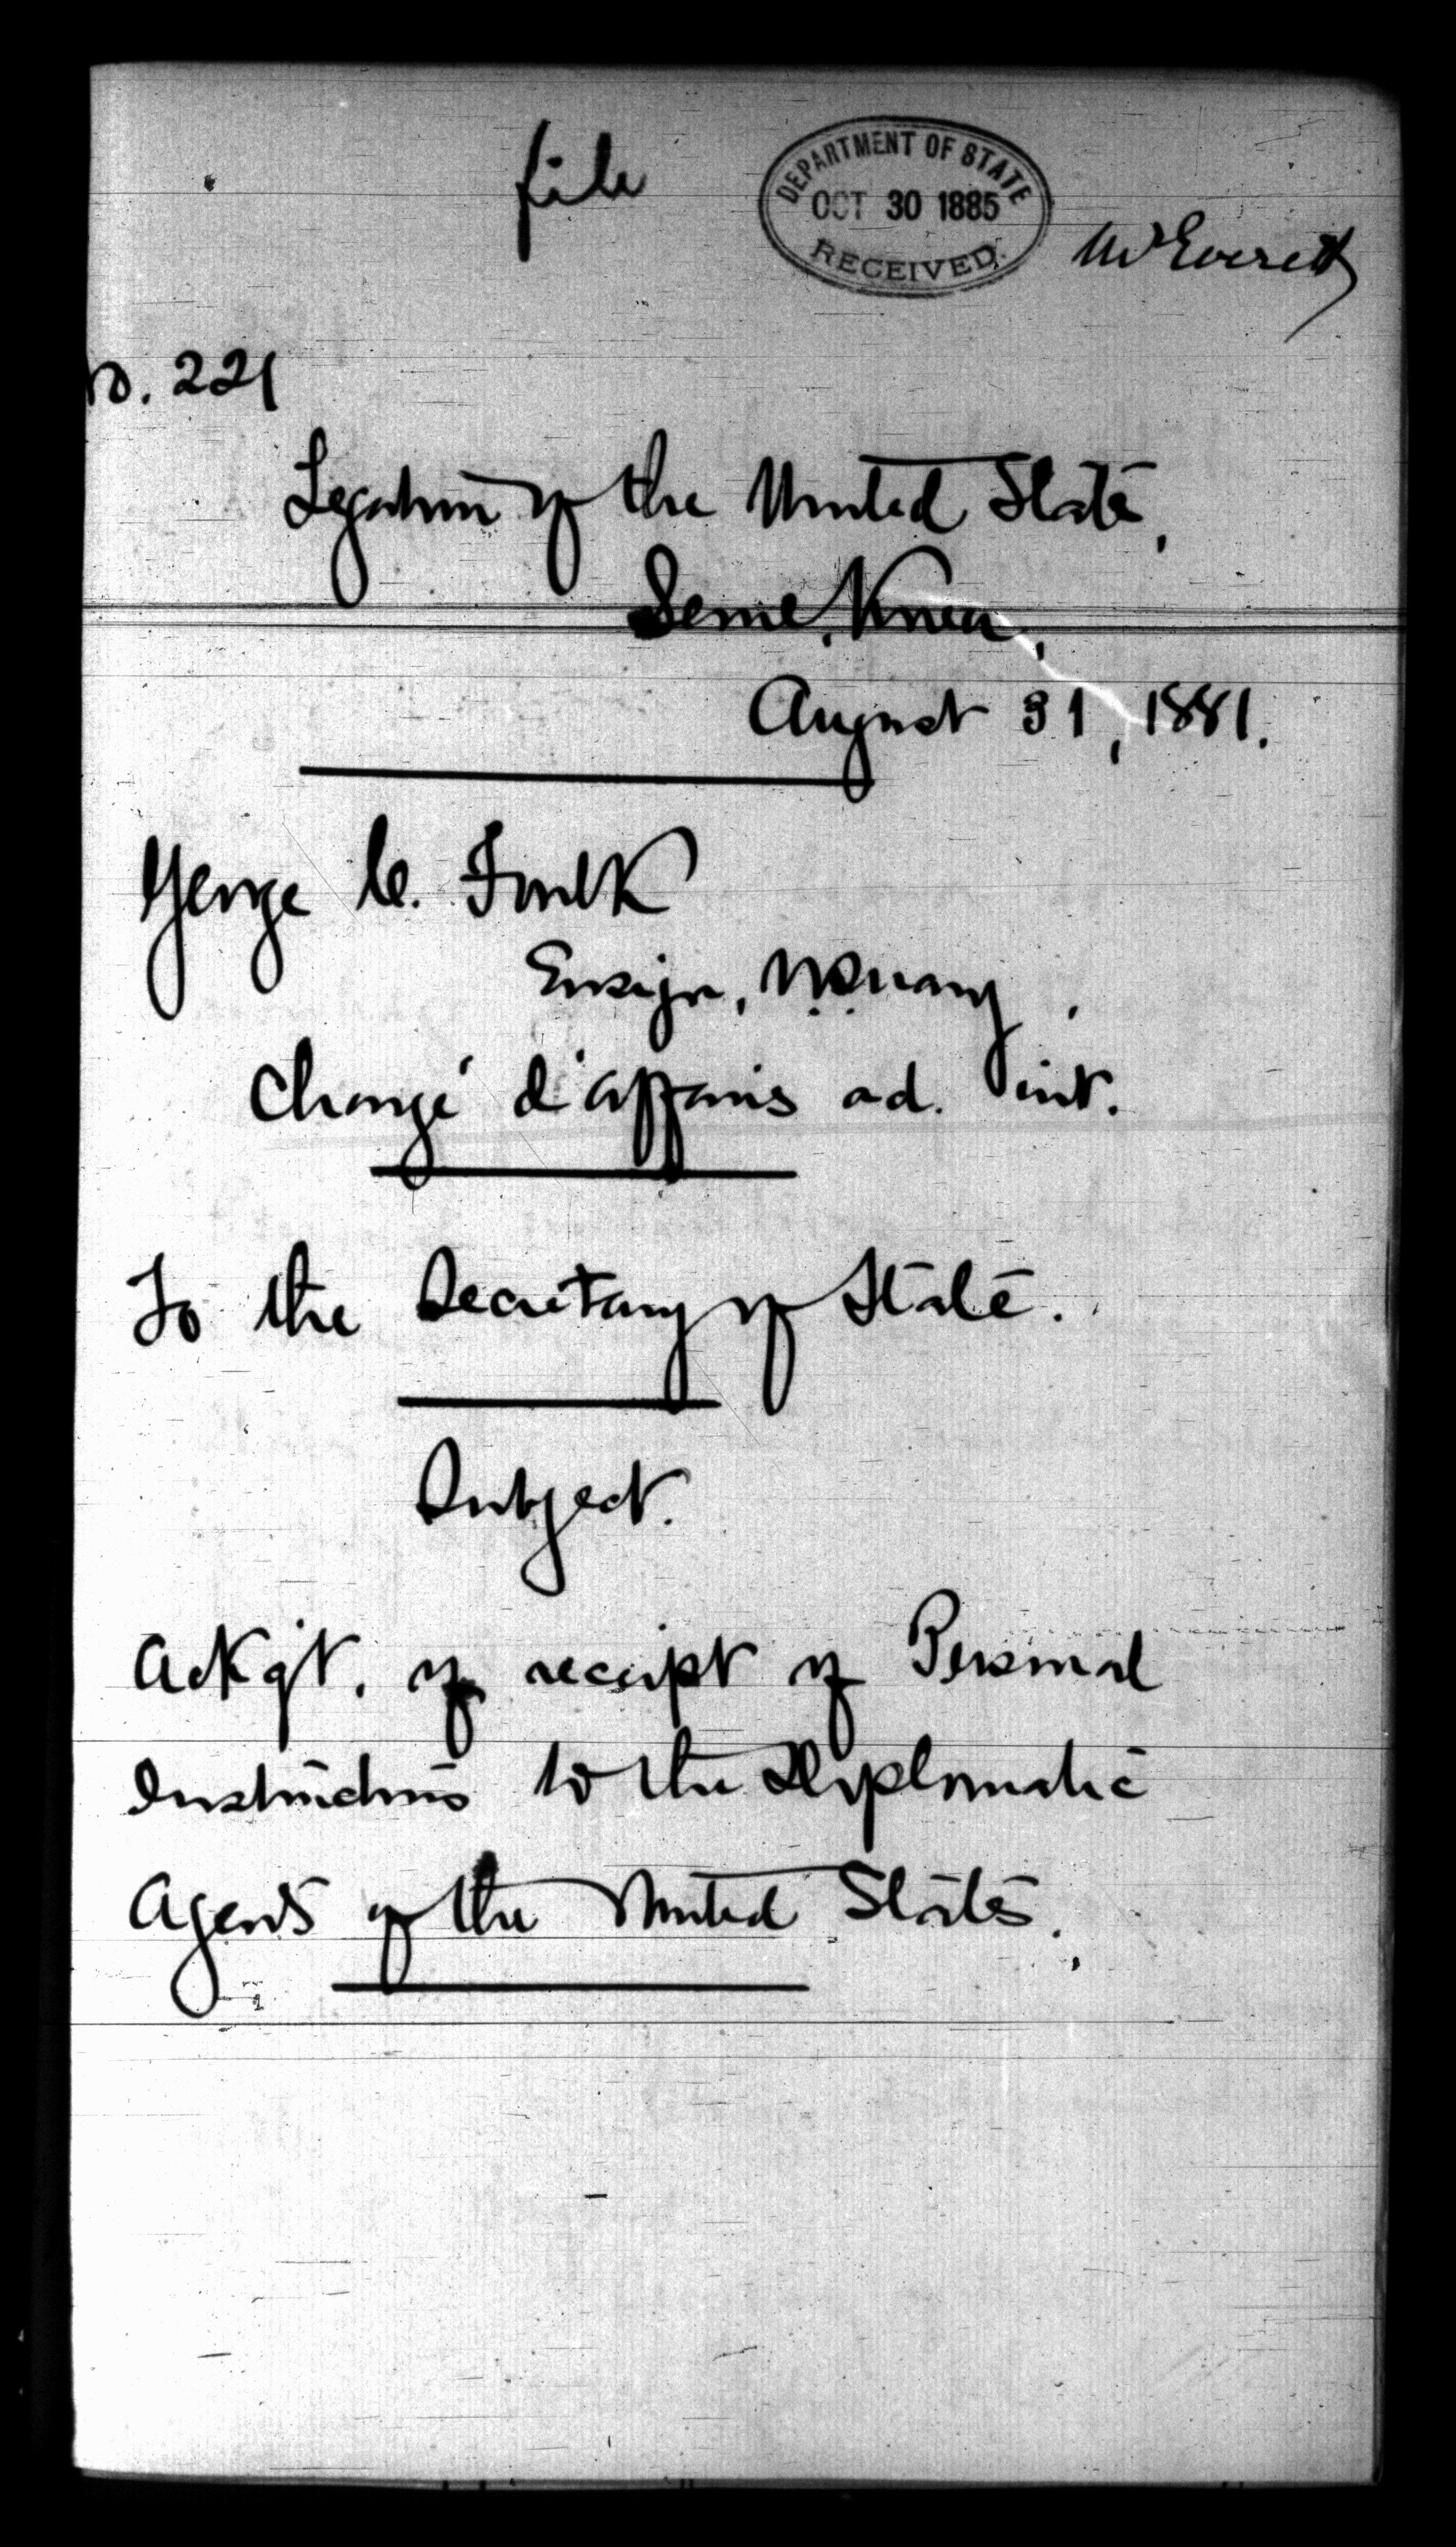 file
DEPARTMENT OF STATE
OCT 30 1885
RECEIVED.
Mr Everett
No. 221
Legation of the United States,
Seoul, Korea,
August 31, 1881.
George C. Foulk
Ensign, U.S. Navy,
Chargé d'affaires ad. int.
To the Secretary of State.
Subject.
Ackgt. of receipt of Personal
Instructions to the Diplomatic
Agents of the United States.